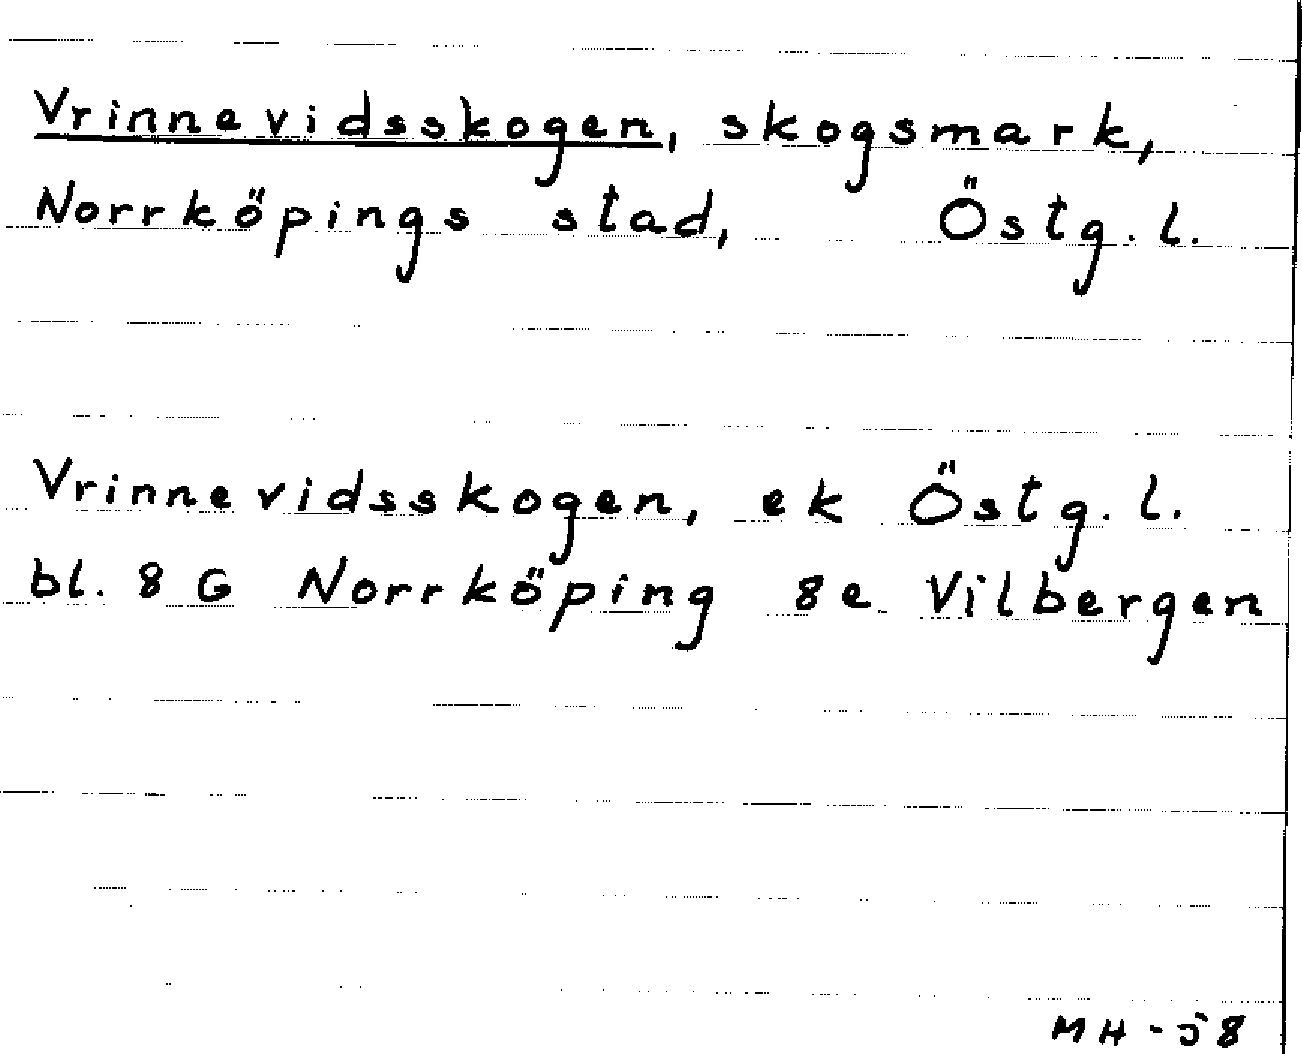 Vrinnevidsskogen, skogsmark,
Norrköpings stad, Östg.l.
Vrinnevidsskogen, ek Östg.l.
bl. 8 G Norrköping 8e Vilbergen
MH-58